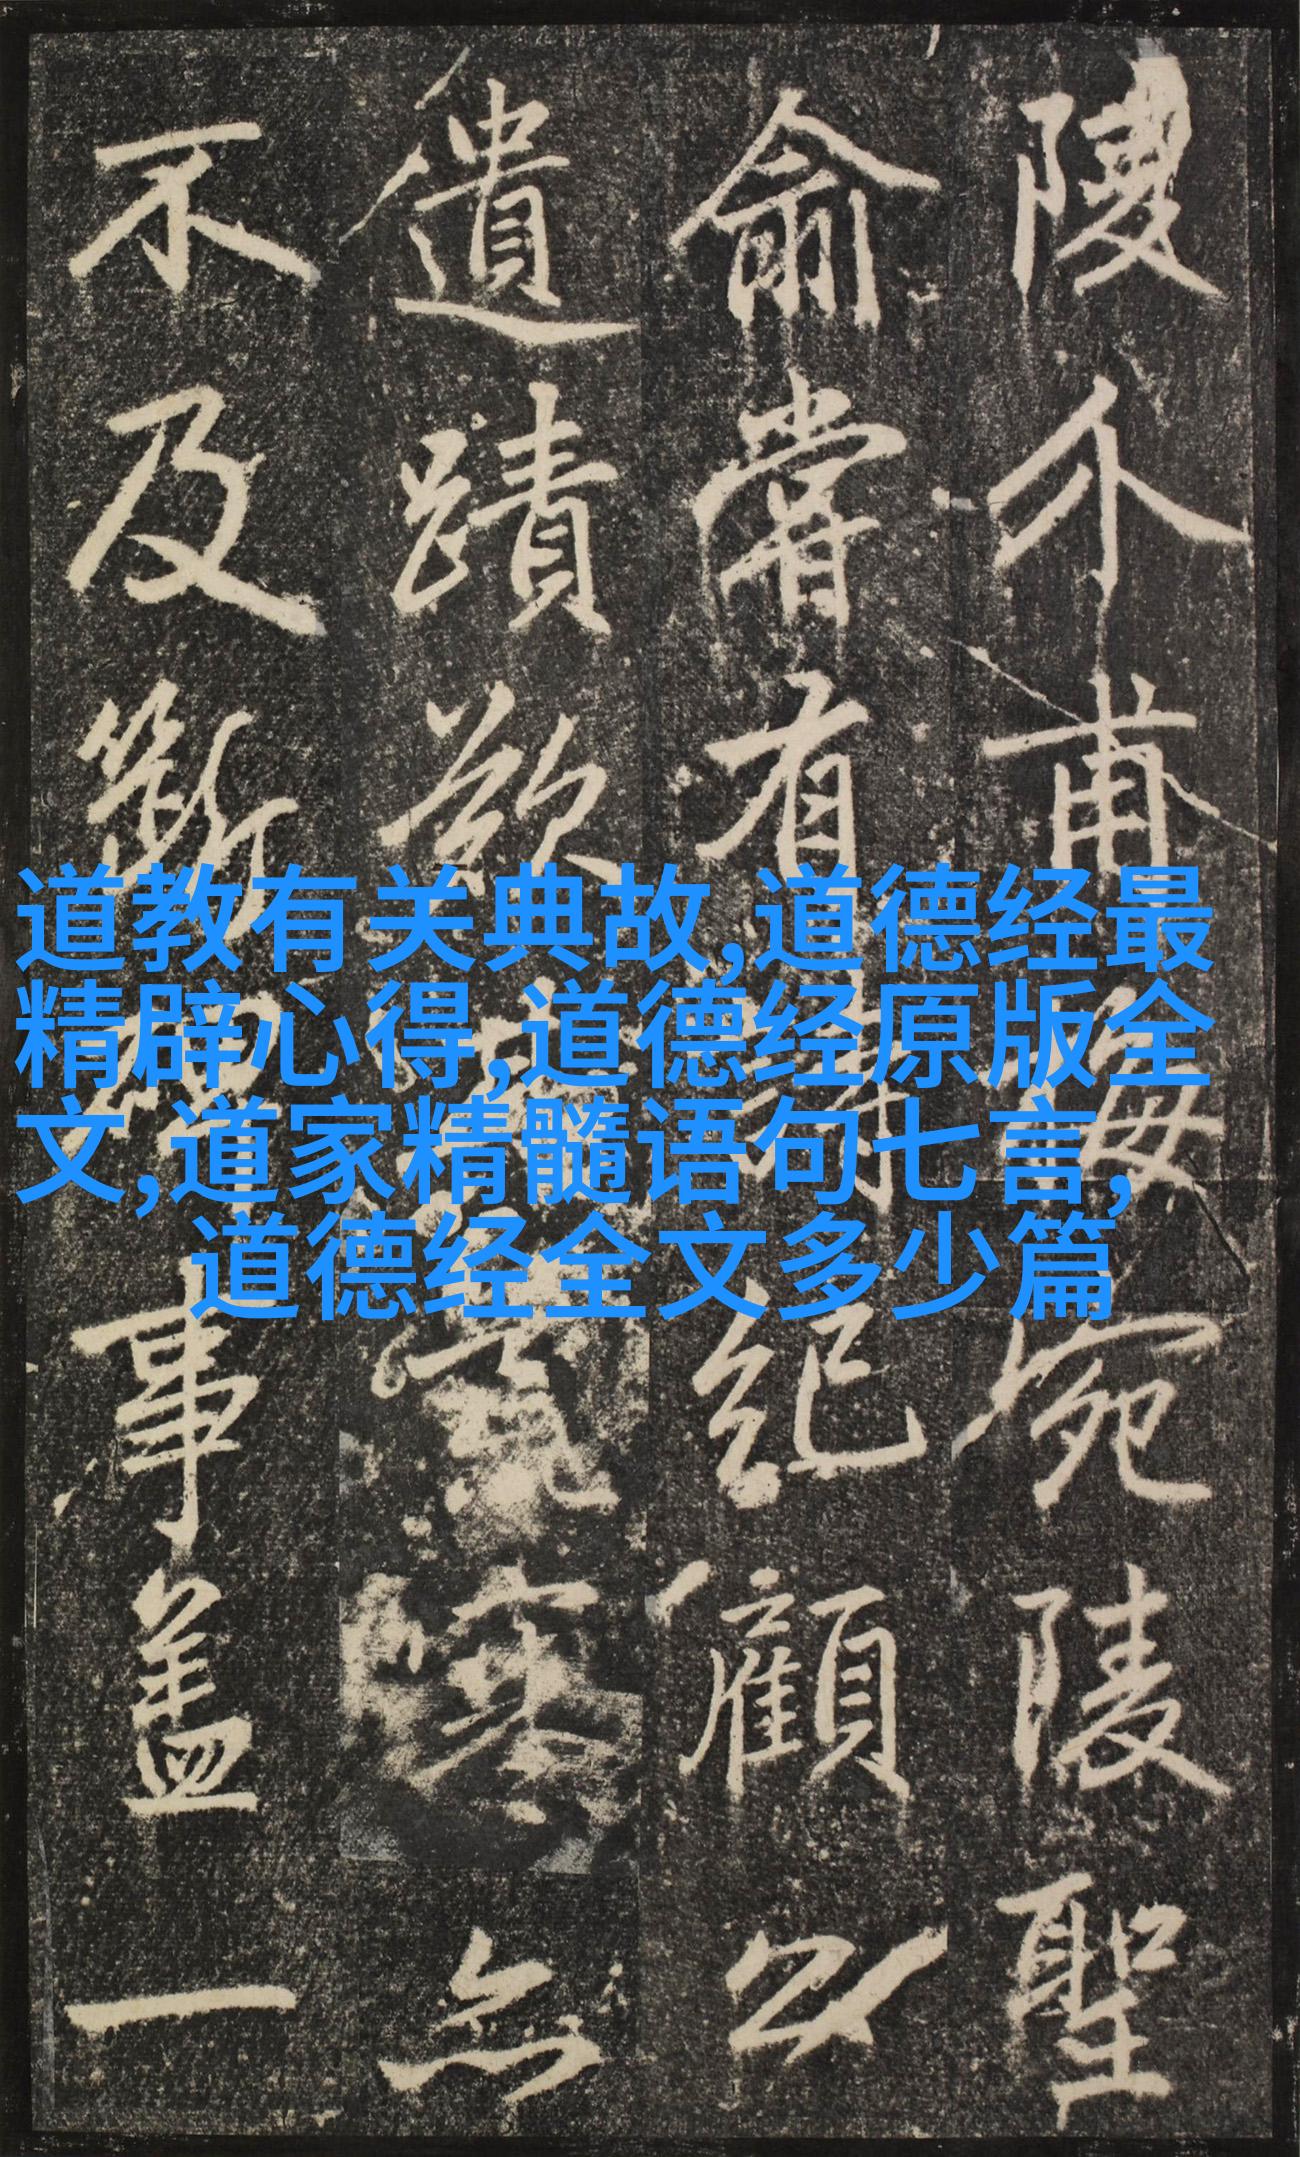 陵介甫梅宛陵聖
俞嘗有詩紀顧公
遺蹟欲寒無
不及斷碑事盖一
道教有关典故,道德经最
精辟心得,道德经原版全
文,道家精髓语句七言,
道德经全文多少篇